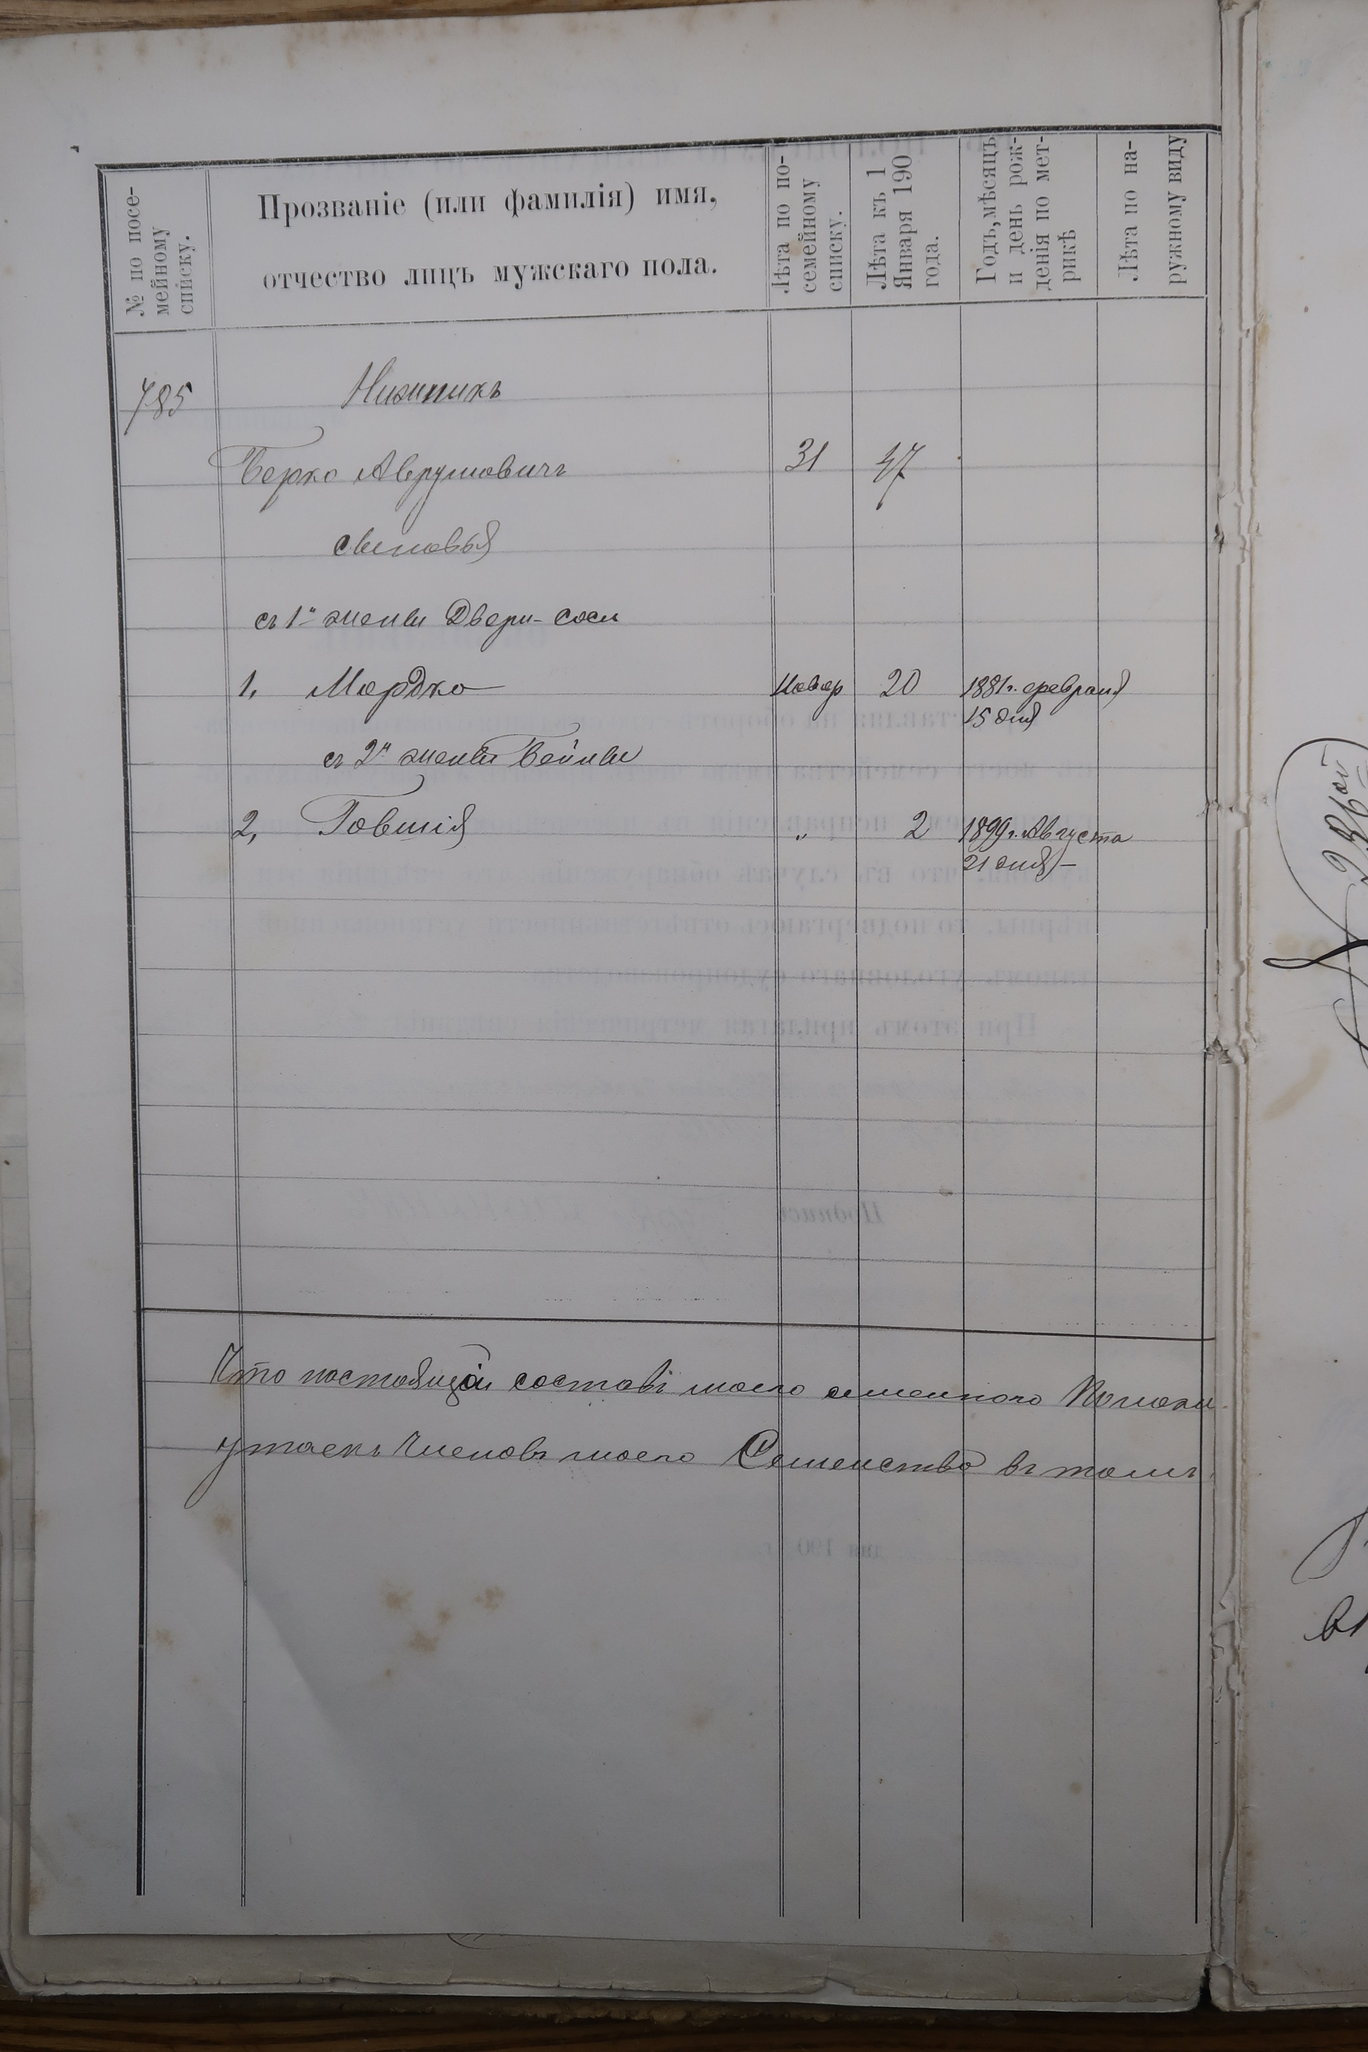 № по посе-
мейному
списку.
Прозваніе (или фамилія) имя,
отчество лицъ мужскаго пола.
Лѣта по по-
семейному
списку.
Лѣта къ 1
Января 190
года.
Годъ, мѣсяцъ
и день рож-
денія по мет-
рикѣ
Лѣта по на-
ружному виду
785
Берко Аврумовичъ 31 47
сыновья
съ 1й жены Двери-Соси
1, Мордко Новор 20 1881г. февраля
15 дня
съ 2й жены Бейлы
2, Говшія " 2 1899г. Августа
21 дня
Что настоящій составъ моего семейного
членовъ моего Семейство въ томъ